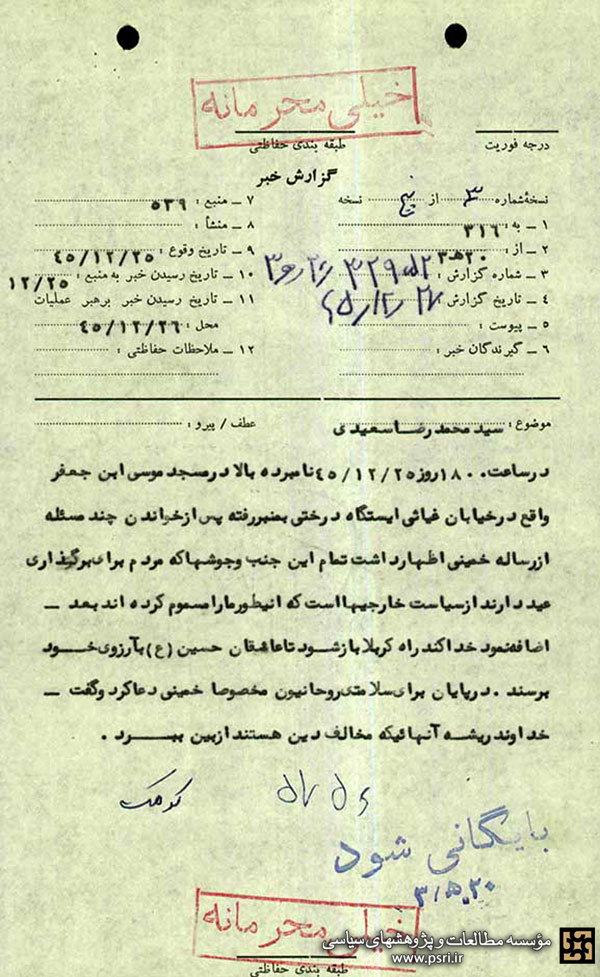 خیلی محرمانه
طبقه بندی حفاظتی
درجه فوریت
گزارش خبر
نسخهٔ شماره ۳ از پنج نسخه
۱ ــ به : ۳۱۶
۲ ــ از : ۲۰ ه‍ ۳
۳ ــ شماره گزارش :
۴ ــ تاریخ گزارش :
۵ ــ پیوست :
۶ ــ گیرندگان خبر :
۷ ــ منبع : ۵۳۹
۸ ــ منشأ :
۹ ــ تاریخ وقوع : ۴۵/۱۲/۲۵
۱۰ ــ تاریخ رسیدن خبر به منبع : ۱۲/۲۵
۱۱ ــ تاریخ رسیدن خبر برهبر عملیات
محل : ۴۵/۱۲/۲۶
۱۲ ــ ملاحظات حفاظتی :
موضوع : سید محمد رضا سعیدی
عطف / پیرو :
در ساعت ۱۸۰۰ روز ۴۵/۱۲/۲۵ نامبرده بالا در مسجد موسی ابن جعفر
واقع در خیابان غیاثی ایستگاه درختی بمنبر رفته پس از خواندن چند مسئله
از رساله خمینی اظهار داشت تمام این جنب وجوشها که مردم برای برگذاری
عید دارند از سیاست خارجیها است که اینطور ما را مسموم کرده اند بعد ــ
اضافه نمود خدا کند راه کربلا باز شود تا عاشقان حسین (ع) بآرزوی خود
برسند . در پایان برای سلامتی روحانیون مخصوصا خمینی دعا کرد و گفت ــ
خداوند ریشه آنهائیکه مخالف دین هستند از بین ببرد .
بایگانی شود
خیلی محرمانه
طبقه بندی حفاظتی
مؤسسه مطالعات و پژوهشهای سیاسی
www.psri.ir